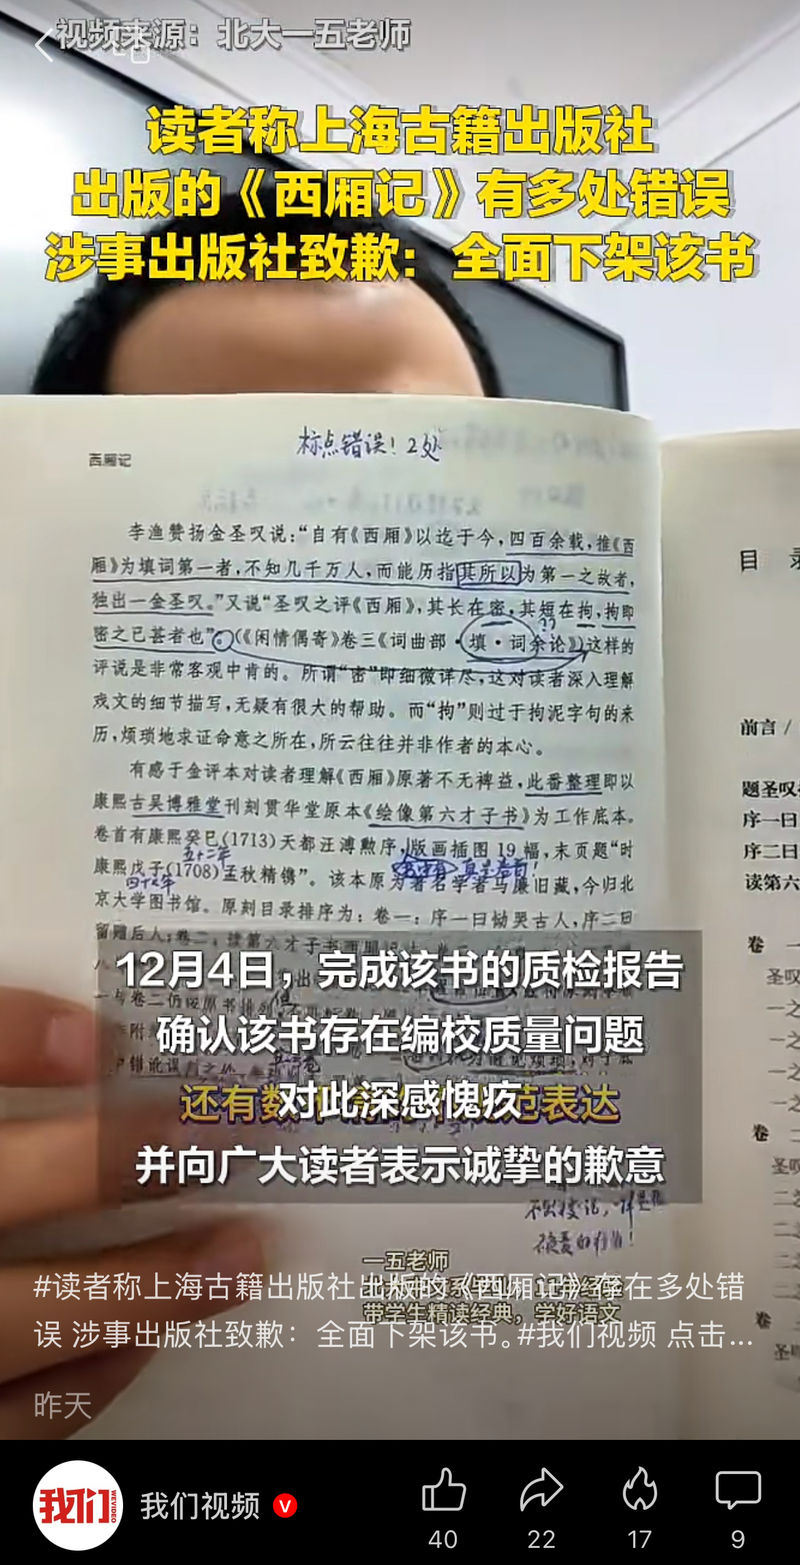 视频来源：北大一五老师
读者称上海古籍出版社
出版的《西厢记》有多处错误
涉事出版社致歉：全面下架该书
标点错误！2处
西厢记
李渔赞扬金圣叹说：“自有《西厢》以迄于今，四百余载，推《西
厢》为填词第一者，不知几千万人，而能历指其所以为第一之故者，
独出一金圣叹。”又说“圣叹之评《西厢》，其长在密，其短在拘，拘即
密之已甚者也”。（《闲情偶寄》卷三《词曲部·填·词余论》）这样的
评说是非常客观中肯的。所谓“密”即细微详尽，这对读者深入理解
戏文的细节描写，无疑有很大的帮助。而“拘”则过于拘泥字句的来
历，烦琐地求证命意之所在，所云往往并非作者的本心。
有感于金评本对读者理解《西厢》原著不无裨益，此番整理即以
康熙古吴博雅堂刊刻贯华堂原本《绘像第六才子书》为工作底本。
卷首有康熙癸巳(1713)天都汪溥勲序，版画插图19幅，末页题“时
五十二年
康熙戊子(1708)孟秋精镌”。该本原为著名学者马廉旧藏，今归北
四十七年
京大学图书馆。原刻目录排序为：卷一：序一曰恸哭古人，序二曰
留赠后人；卷二：读第六才子书西厢记
目 录
前言 /
题圣叹
序一曰
序二曰
读第六
卷 一
圣叹
一之
一之
一之
一之
卷 二
圣叹
二之
二之
二之
二之
卷 三
圣叹
12月4日，完成该书的质检报告
确认该书存在编校质量问题
对此深感愧疚
并向广大读者表示诚挚的歉意
一五老师
带学生精读经典，学好语文
#读者称上海古籍出版社出版的《西厢记》存在多处错
误 涉事出版社致歉：全面下架该书。#我们视频 点击...
昨天
我们
WEVIDEO
我们视频
V
40
22
17
9